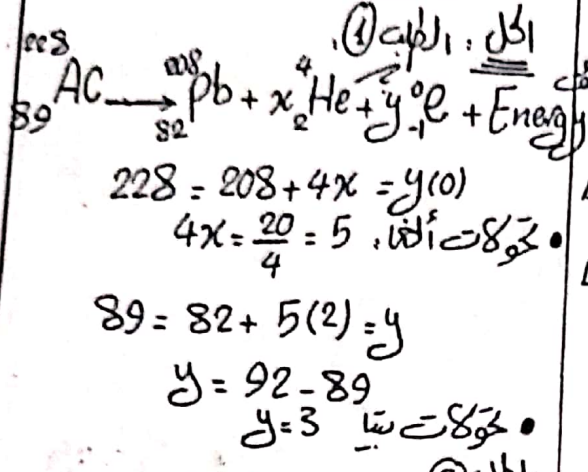 الحل: الطلب ①.
²²⁸₈₉AC → ²⁰⁸₈₂Pb + x ⁴₂He + y ⁰₋₁e + Energy
228 = 208 + 4x = y(0)
4x = 20/4 = 5 تحولات ألفا.
89 = 82 + 5(2) = y
y = 92 - 89
y = 3 تحولات بيتا